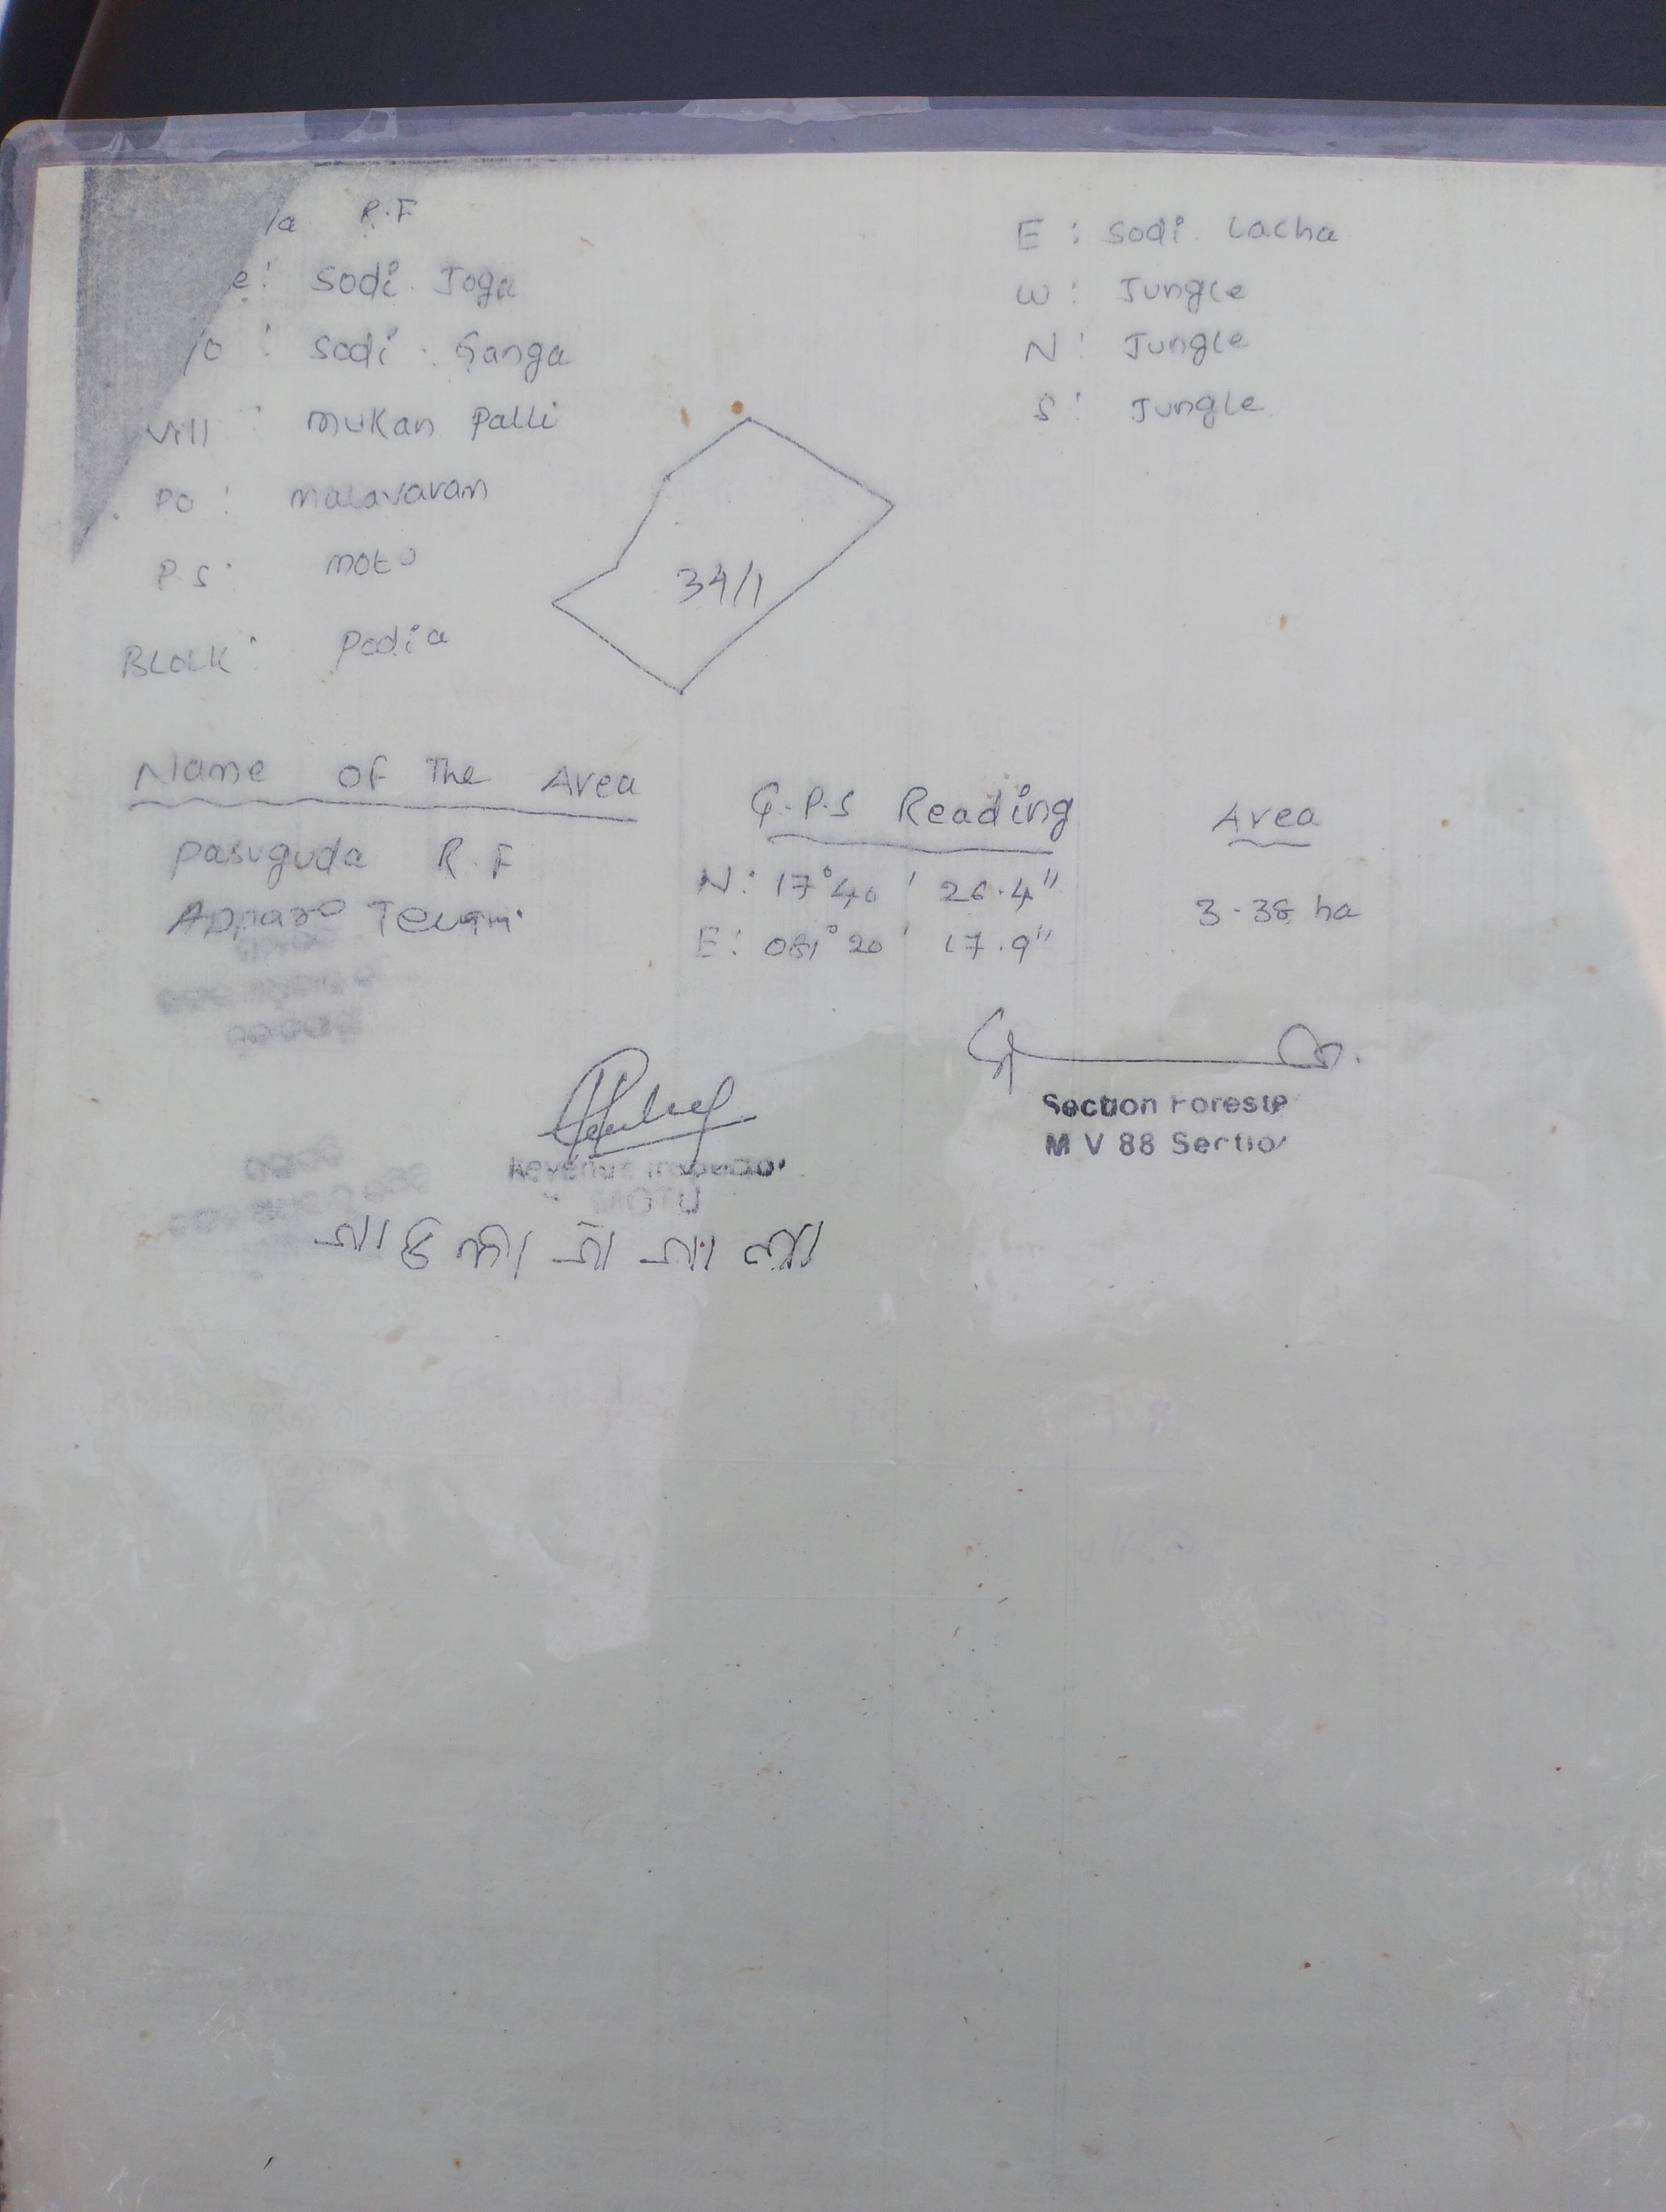 la R.F
e: Sodi. Joga
/o : Sodi. Ganga
Vill : Mukan Palli
Po : Malavaram
P.S: Motu
BLOCK: Podia
E : Sodi. Lacha
W : Jungle
N : Jungle
S : Jungle
34/1
Name Of The Area
Pasuguda R.F
G.P.S Reading
N: 17°40' 26.4"
E: 081°20' 17.9"
Area
3.38 ha
Revenue Inspector
MOTU
Section Foreste
M V 88 Section